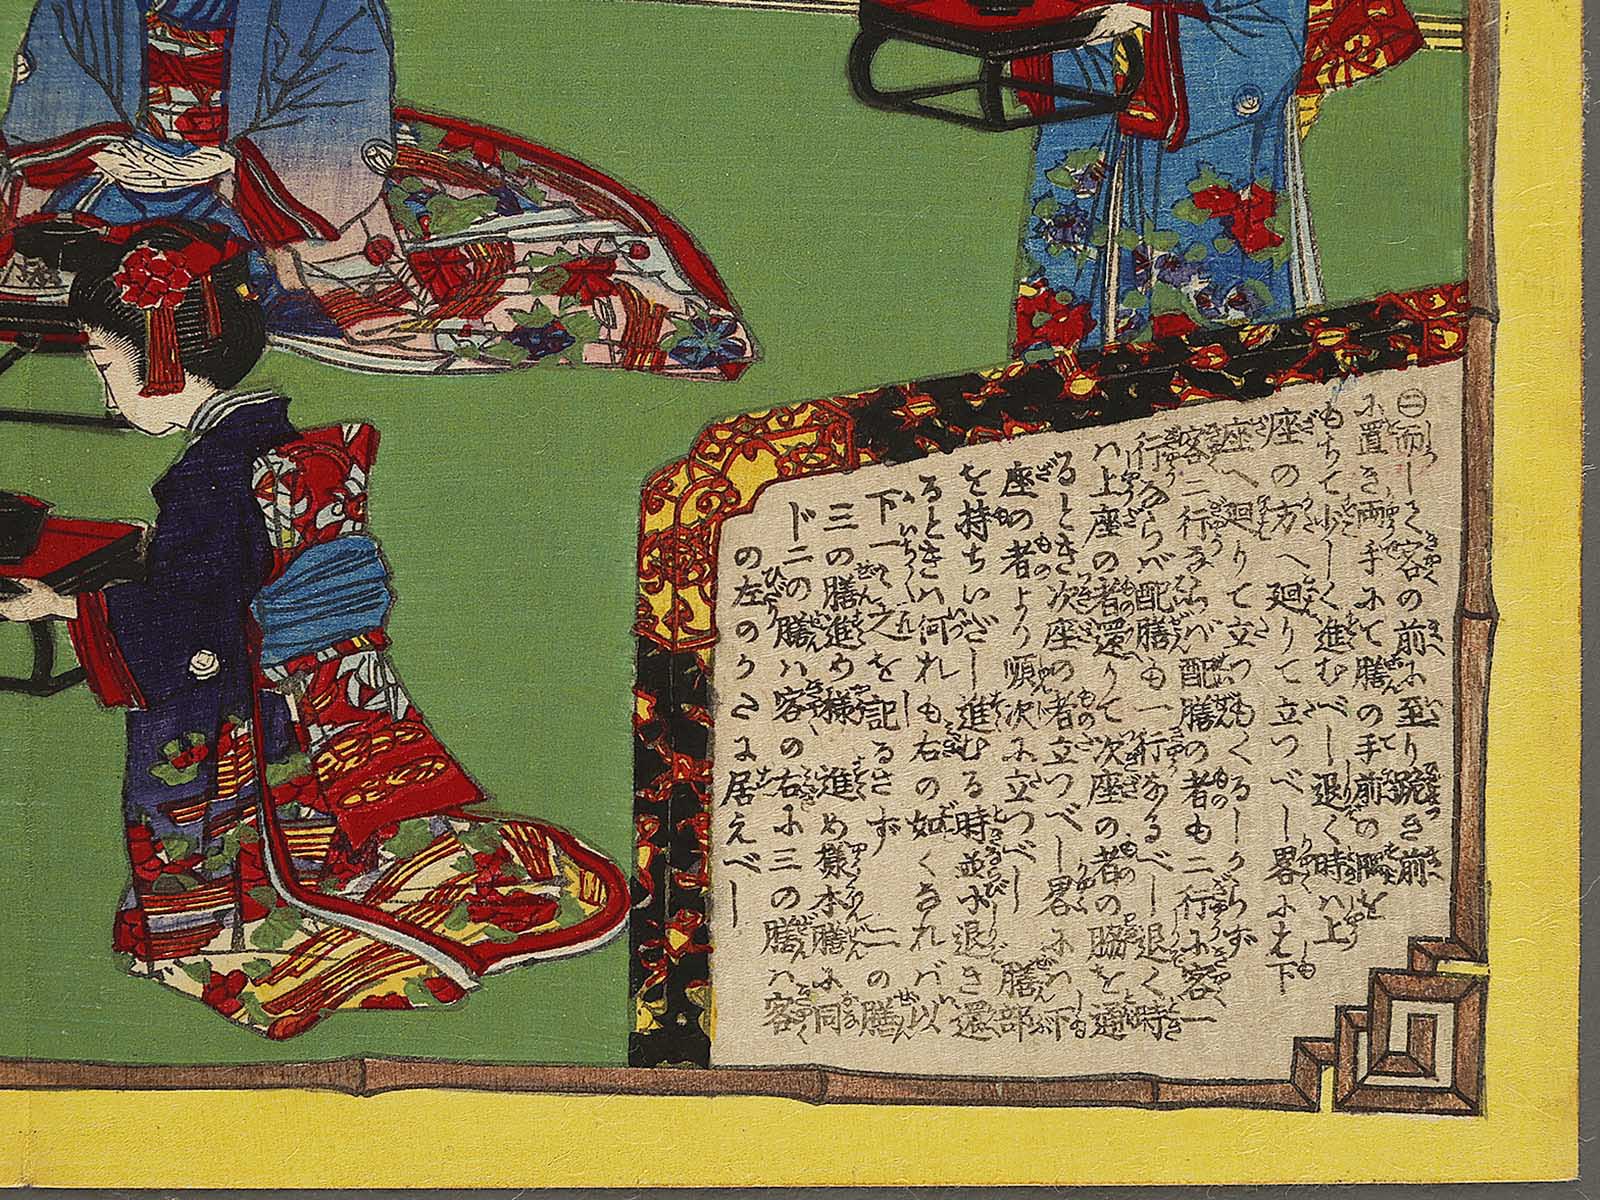 ㊁而して客の前に至り跪き前
に置き両手にて膳の手前の隅を
もちて少しく進むべし退く時ハ上
座の方へ廻りて立つべし畧に之下
座へ廻りて立つもくるしからず
客二行ならバ配膳の者も二行に客一
行ならバ配膳も一行なるべし退く時
ハ上座の者還りて次座の者の脇を通
るとき次座の者立つべし畧にハ下
座の者より順次に立つべし 膳部
を持ちいだし進むる時並に退き還
るときハ何れも右の如くなれバ以
下一々之を記るさず 二の膳
三の膳進め様 進め様本膳に同
じ二の膳ハ客の右に三の膳ハ客
の左のかたに居えべし